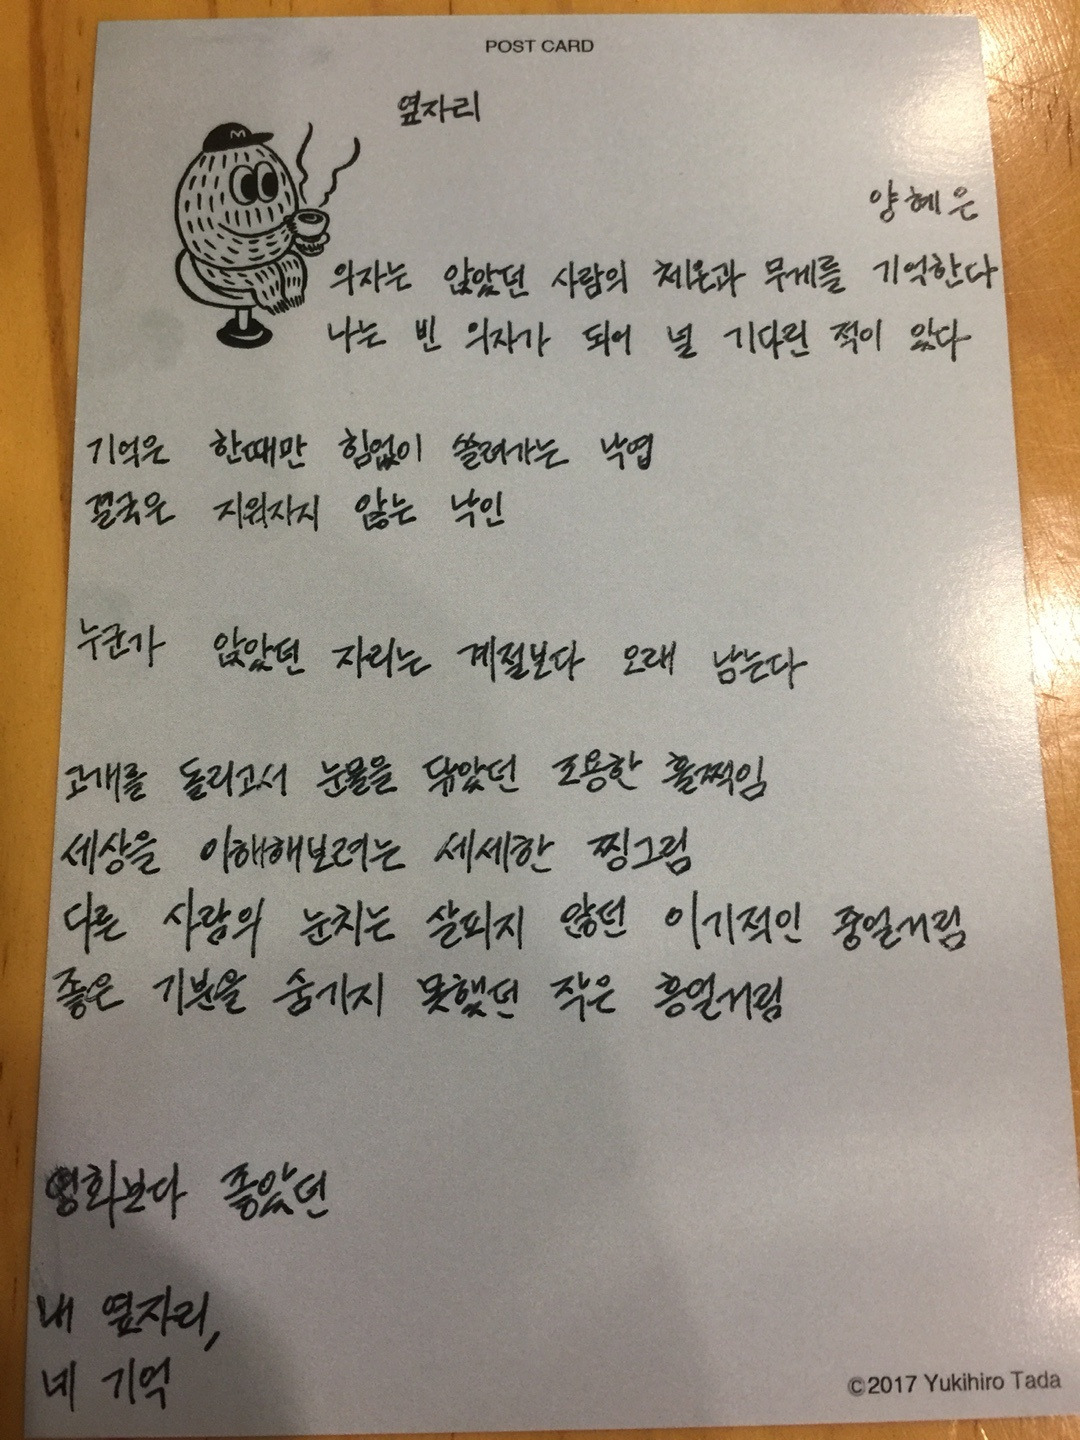 POST CARD
옆자리
M
양혜은
의자는 앉았던 사람의 체온과 무게를 기억한다
나는 빈 의자가 되어 널 기다린 적이 있다
기억은 한때만 힘없이 쓸려가는 낙엽
결국은 지워지지 않는 낙인
누군가 앉았던 자리는 계절보다 오래 남는다
고개를 돌리고서 눈물을 닦았던 조용한 훌쩍임
세상을 이해해보려는 세세한 찡그림
다른 사람의 눈치는 살피지 않던 이기적인 중얼거림
좋은 기분을 숨기지 못했던 작은 흥얼거림
영화보다 좋았던
내 옆자리,
네 기억
©2017 Yukihiro Tada